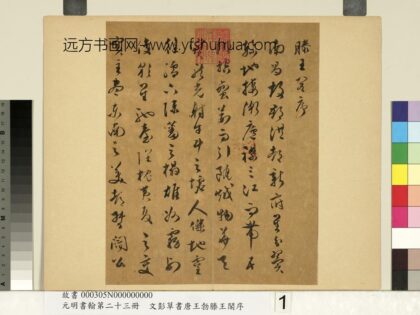 远方书画网: www.yfshuhua.com
滕王閣序
南昌故郡洪都新府星分翼
軫地接衡廬襟三江而帶五
湖控蠻荊而引甌越物華天
寶龍光射牛斗之墟人傑地靈
徐孺下陳蕃之榻雄州霧列
俊彩星馳臺隍枕夷夏之交
賓主盡東南之美都督閻公
故書 000305N000000000
元明書翰第二十三冊 文彭草書唐王勃滕王閣序
1